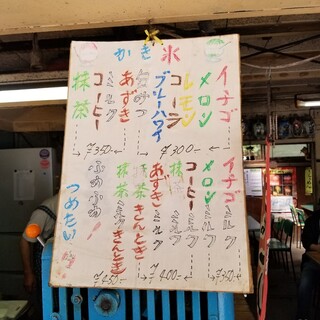 かき氷
イチゴ
メロン
レモン
コーラ
ブルーハワイ
あずき
コーヒー
抹茶
¥300-
¥350-
イチゴミルク
メロンミルク
コーヒーミルク
抹茶ミルク
あずきミルク
抹茶きんとき
抹茶ミルクきんとき
¥350-
¥400-
¥450-
ふわふわ!
つめたい